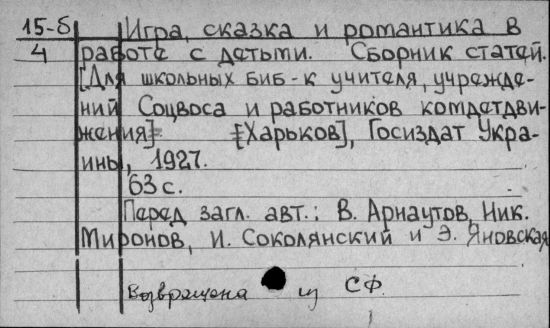 15-б Игра, сказка и романтика в
4 работе с детьми. Сборник статей.
[Для школьных биб-к учителя, учрежде-
ний Соцвоса и работников комдетдви-
жения] [Харьков], Госиздат Укра-
ины, 1927.
63 с.
Перед загл. авт.: В. Арнаутов, Ник.
Миронов, И. Соколянский и Э. Яновская
Возвращена из СФ.